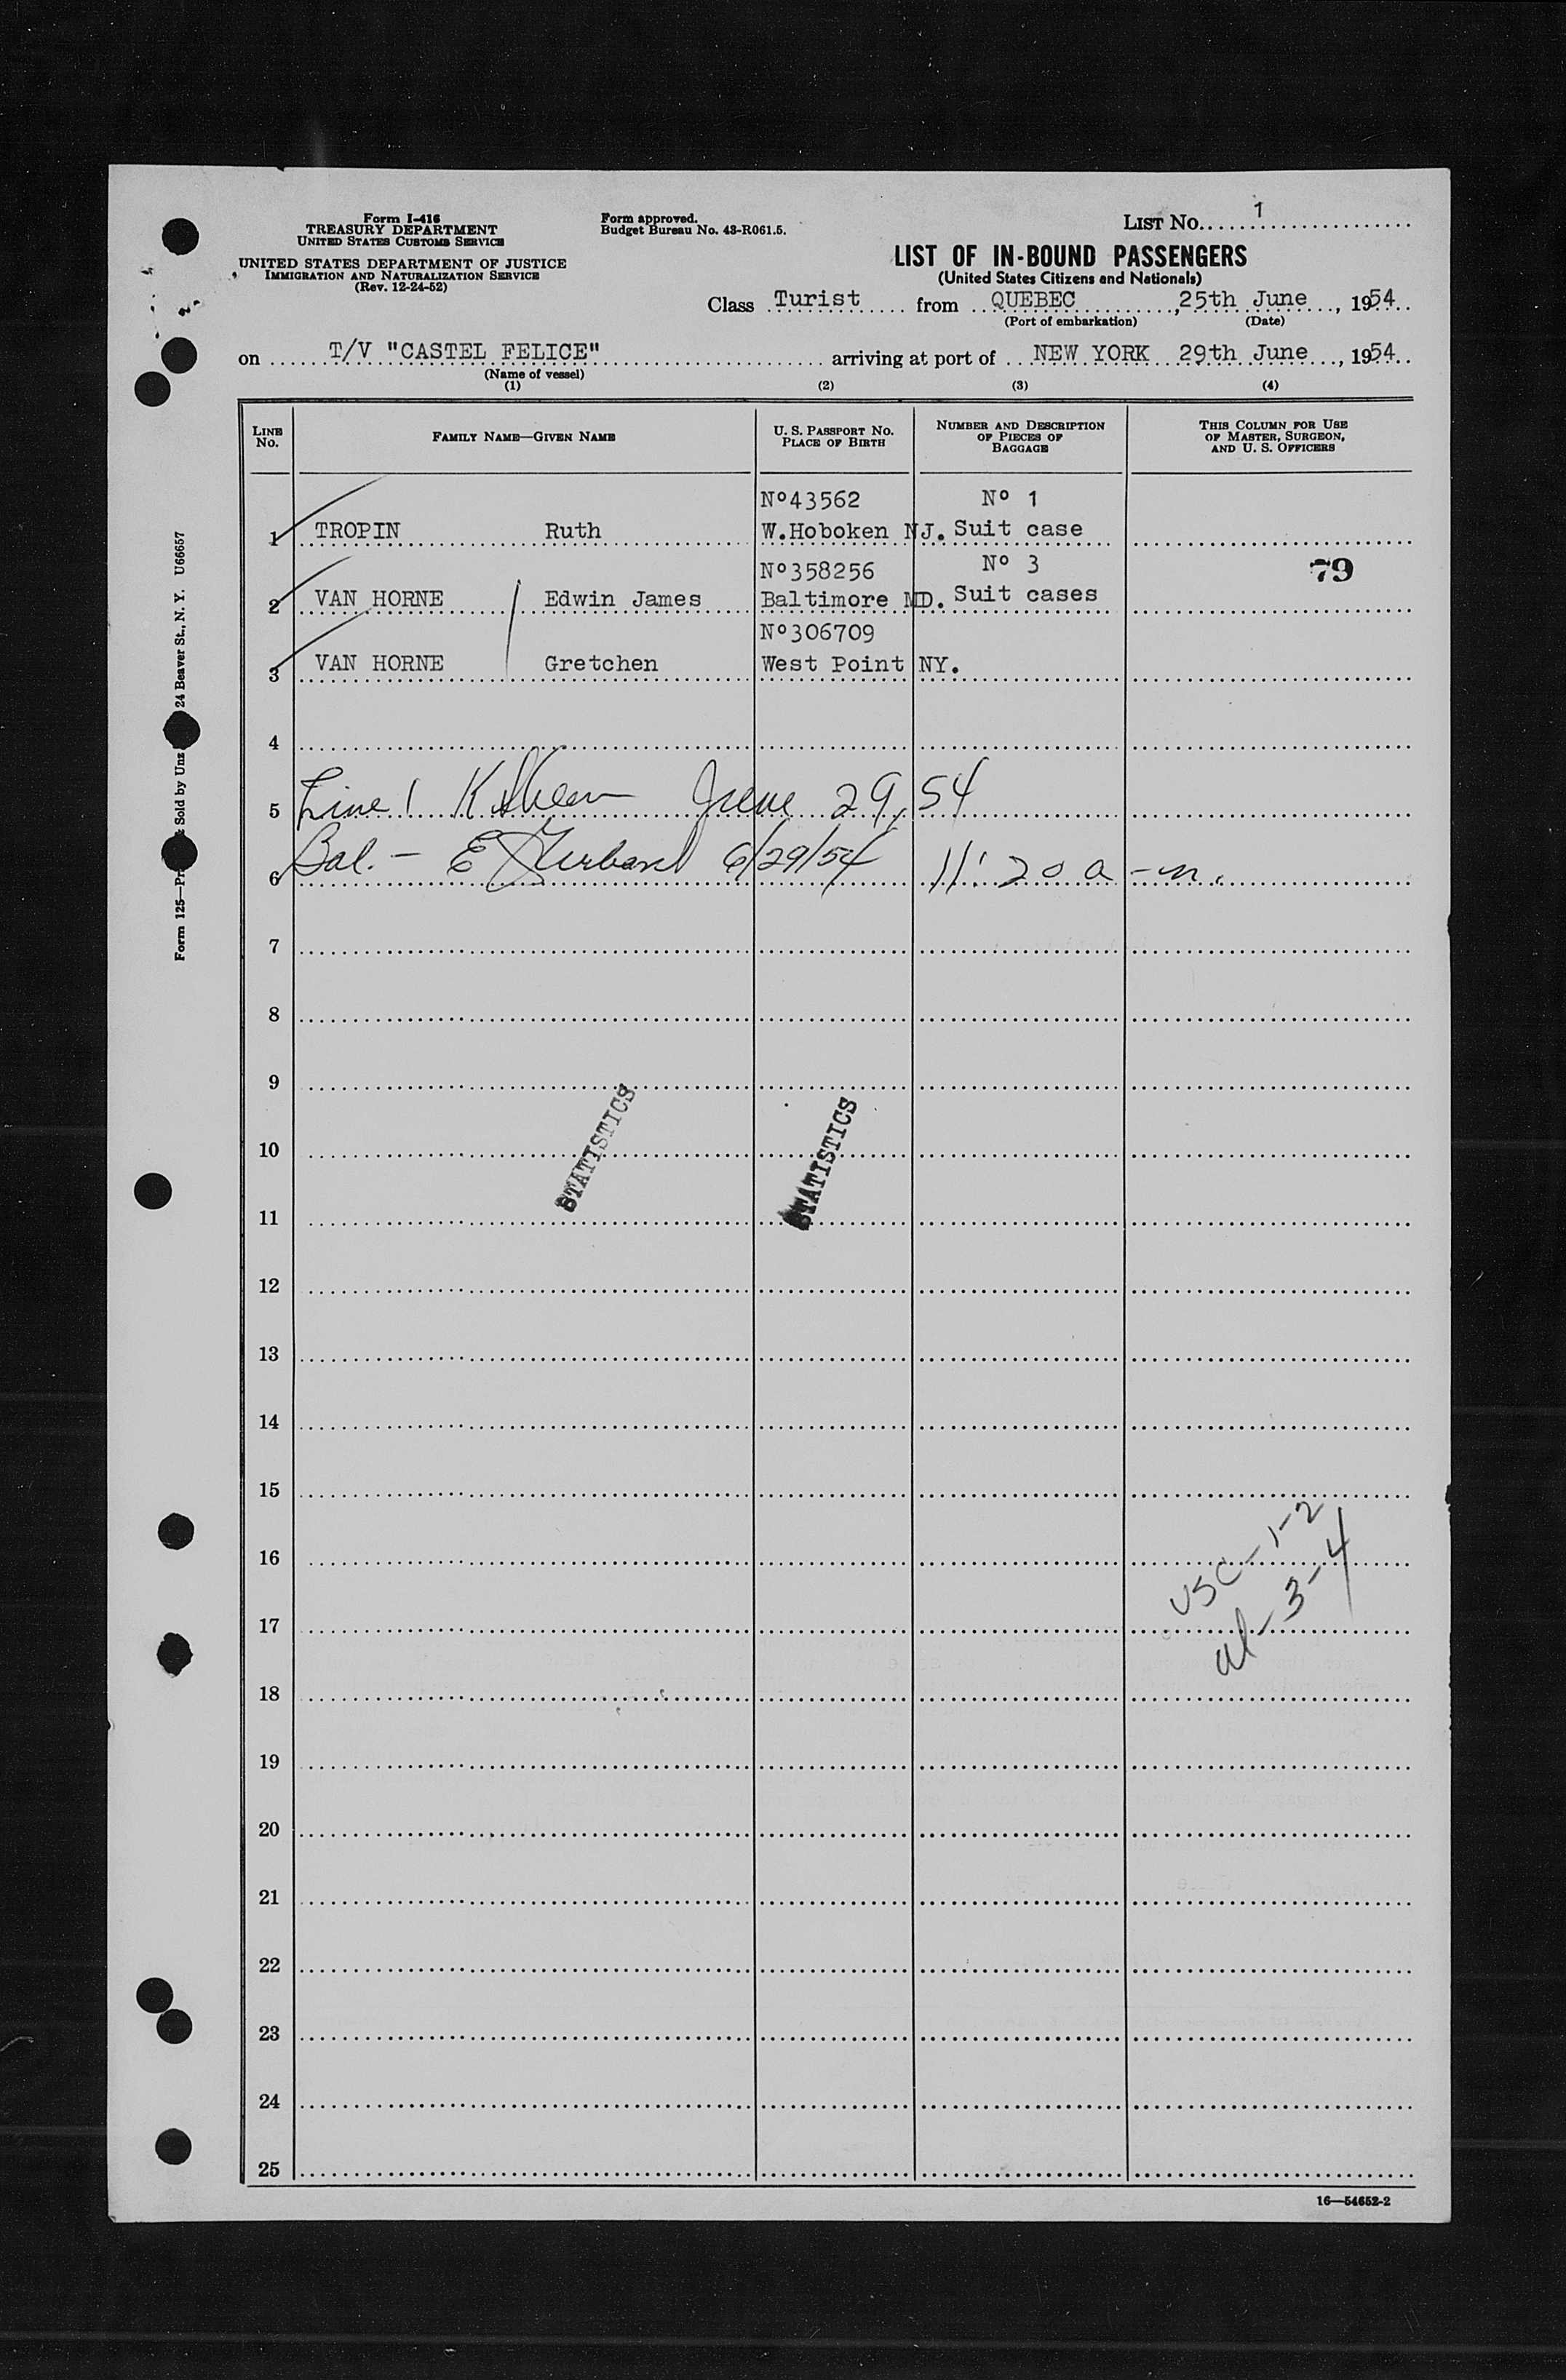 Form I-416
TREASURY DEPARTMENT
UNITED STATES CUSTOMS SERVICE
UNITED STATES DEPARTMENT OF JUSTICE
IMMIGRATION AND NATURALIZATION SERVICE
(Rev. 12-24-52)
Form approved.
Budget Bureau No. 43-R061.5.
LIST No. 1
LIST OF IN-BOUND PASSENGERS
(United States Citizens and Nationals)
Class Turist from QUEBEC, 25th June, 1954
(Port of embarkation) (Date)
on T/V "CASTEL FELICE" arriving at port of NEW YORK 29th June, 1954
(Name of vessel)
(1) (2) (3) (4)
LINE No. FAMILY NAME—GIVEN NAME U. S. PASSPORT No. PLACE OF BIRTH NUMBER AND DESCRIPTION OF PIECES OF BAGGAGE THIS COLUMN FOR USE OF MASTER, SURGEON, AND U. S. OFFICERS
Nº43562 Nº 1
1 TROPIN Ruth W.Hoboken NJ. Suit case
Nº358256 Nº 3 79
2 VAN HORNE Edwin James Baltimore MD. Suit cases
Nº306709
3 VAN HORNE Gretchen West Point NY.
4
5 Line 1 June 29, 54
6 Bal. - E 6/29/54 11:20 a-m.
7
8
9
10
STATISTICS STATISTICS
11
12
13
14
15
16 USC-1-2
17 al-3-4
18
19
20
21
22
23
24
25
16—54652-2
Form 125— Sold by Unz 24 Beaver St., N. Y. U66657